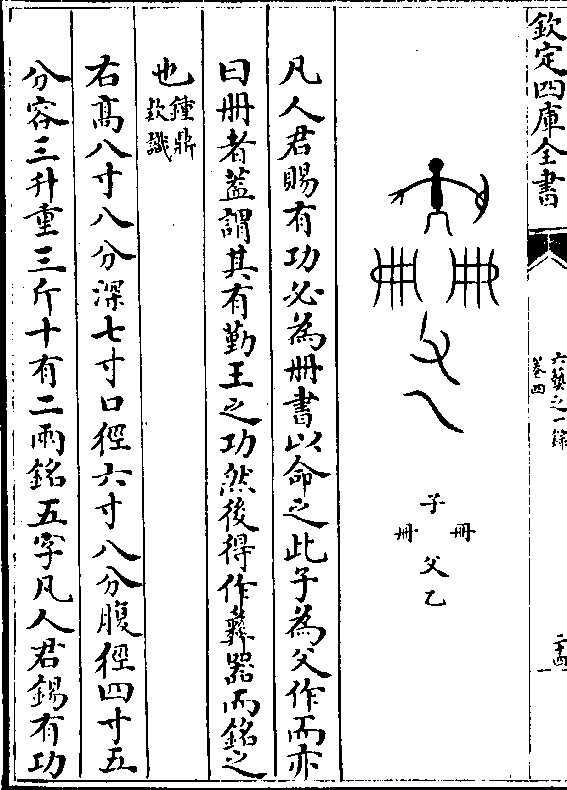 欽定四庫全書
六藝之一錄
卷四
二十四
子
冊 冊
父乙
凡人君賜有功必為冊書以命之此子為父作而亦
曰冊者蓋謂其有勤王之功然後得作彝器而銘之
也鍾鼎
款識
右高八寸八分深七寸口徑六寸八分腹徑四寸五
分容三升重三斤十有二兩銘五字凡人君錫有功